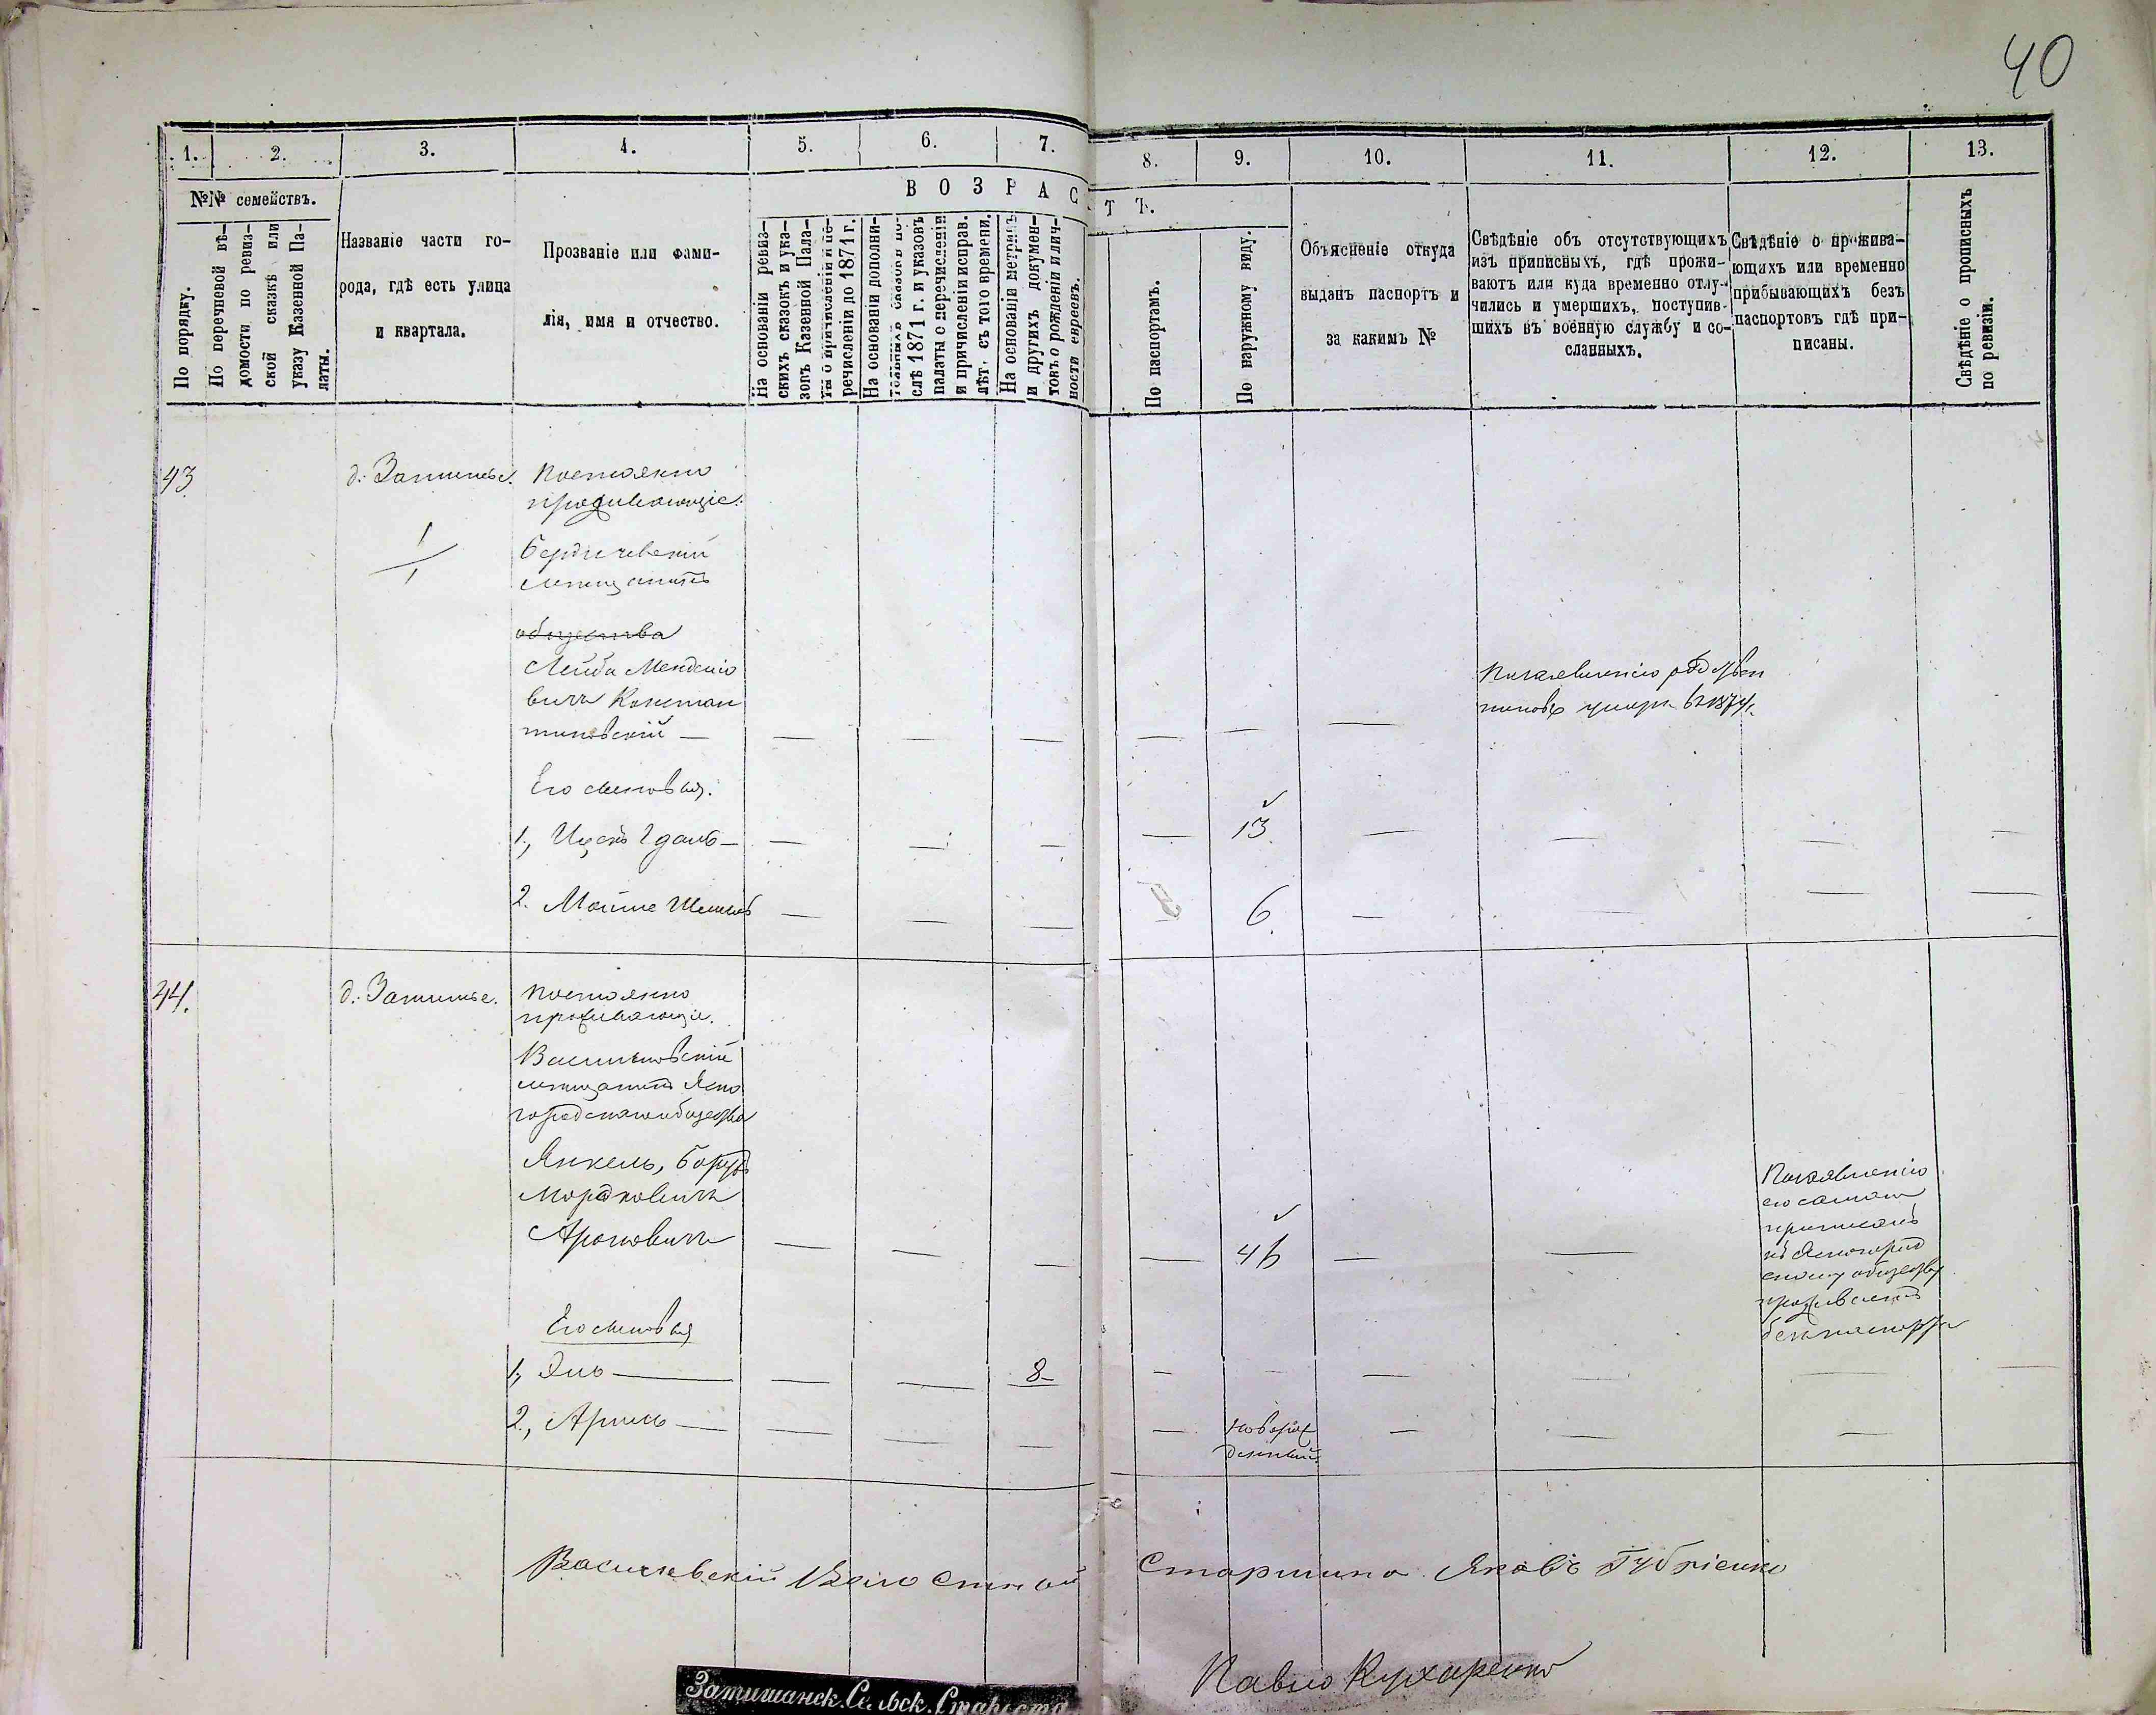 40
1.
2.
3.
4.
5.
6.
7.
8.
9.
10.
11.
12.
13.
№№ семействъ.
По порядку.
По перечневой вѣ-
домости по ревиз-
ской сказкѣ или
указу Казенной Па-
латы.
Названіе части го-
рода, гдѣ есть улица
и квартала.
Прозваніе или фами-
лія, имя и отчество.
ВОЗРАС
ТЪ.
На основаніи ревиз-
скихъ сказокъ и ука-
зовъ Казенной Пала-
ты о причисленіи и пе-
речисленіи до 1871 г.
На основаніи дополни-
слѣ 1871 г. и указовъ
палаты о перечисленіи
и причисленіи исправ.
лѣт. съ того времени.
На основаніи метрикъ
и другихъ докумен-
товъ о рожденіи и лич-
ности евреевъ.
По паспортамъ.
По наружному виду.
Объясненіе откуда
выданъ паспортъ и
за какимъ №
Свѣдѣніе объ отсутствующихъ
изъ приписныхъ, гдѣ прожи-
ваютъ или куда временно отлу-
чились и умершихъ, поступив-
шихъ въ военную службу и со-
сланныхъ.
Свѣдѣніе о прожива-
ющихъ или временно
прибывающихъ безъ
паспортовъ гдѣ при-
писаны.
Свѣдѣніе о прописныхъ
по ревизіи.
43
д. Затишье.
Постоянно
проживающіе:
Бердичевскій
мѣщанинъ
общества
Лейба Менделіо
вичъ Констан
тиновскій —
По заявленію родствен
никовъ умеръ въ 1874 г.
Его сыновья:
1., — 13
2. Мойше — 6
44.
д. Затишье.
Постоянно
проживающіе.
Васильковскій
мѣщанинъ Ясно
городскаго общества
Янкель, Борухъ
Мордковичъ
Ароновичъ
46
По заявленію
его самаго
приписанъ
къ Ясногород
скому обществу
проживаетъ
безъ паспорта
Его сыновья
1, Эль — 8
2, — Новорож
денный
Василевскій Волостной Старшина Яковъ
Павло Кухаренко
Затишанск. Сельск. Староста